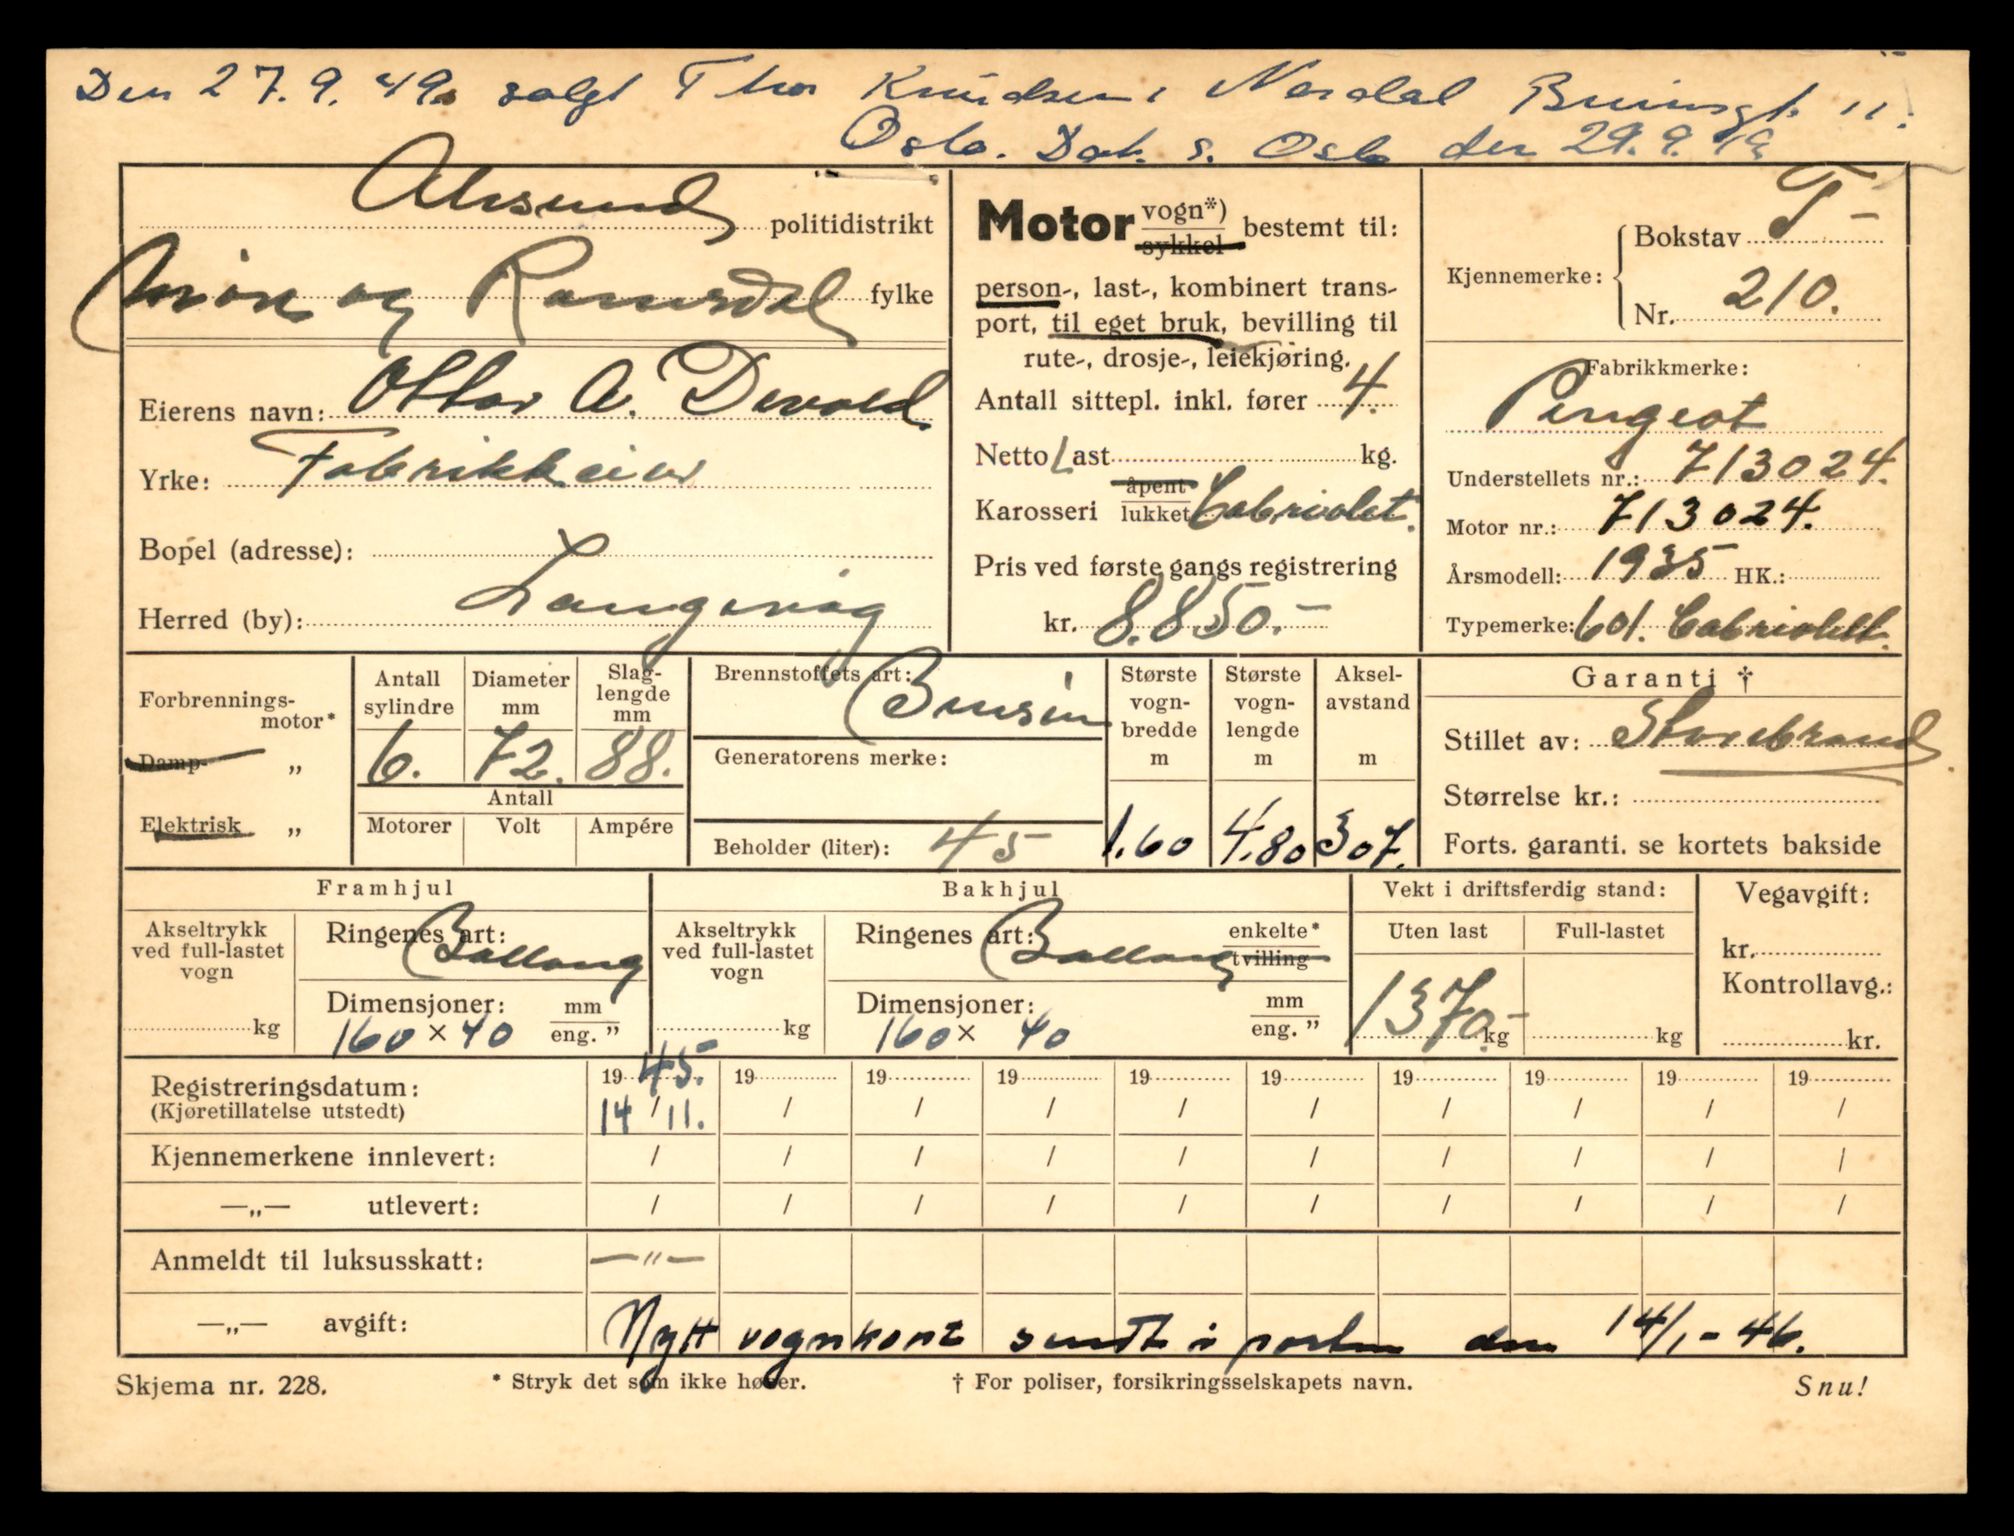 Den 27.9.49. solgt Thor Knudsen, Nordal Brunsgt. 11.
Oslo. Dok. s. Oslo den 29.9.49
Ålesund politidistrikt
Møre og Romsdal fylke
Eierens navn: Ottar A. Devold
Yrke: Fabrikkeier
Bopel (adresse):
Herred (by): Langevåg
Motor vogn*) sykkel bestemt til:
person-, last-, kombinert trans-
port, til eget bruk, bevilling til
rute-, drosje-, leiekjøring.
Antall sittepl. inkl. fører 4.
Netto Last kg.
Karosseri åpent lukket Cabriolet.
Pris ved første gangs registrering
kr. 8.850.-
Kjennemerke: Bokstav T-
Nr. 210.
Fabrikkmerke:
Peugeot
Understellets nr.: 713024.
Motor nr.: 713024.
Årsmodell: 1935 HK.:
Typemerke: 601. Cabriolett.
Forbrennings-
motor*
Damp- „
Elektrisk „
Antall sylindre
6.
Diameter mm
72.
Slag-
lengde
mm
88.
Antall
Motorer Volt Ampére
Brennstoffets art: Bensin
Generatorens merke:
Beholder (liter): 45
Største
vogn-
bredde
m
1.60
Største
vogn-
lengde
m
4.80
Aksel-
avstand
m
307.
Garanti †
Stillet av: Storebrand
Størrelse kr.:
Forts. garanti. se kortets bakside
Framhjul
Akseltrykk
ved full-lastet
vogn
kg
Ringenes art: Ballong
Dimensjoner: mm eng. ”
160 × 40
Bakhjul
Akseltrykk
ved full-lastet
vogn
kg
Ringenes art: Ballong enkelte* tvilling
Dimensjoner: mm eng. ”
160 × 40
Vekt i driftsferdig stand:
Uten last Full-lastet
1370.- kg kg
Vegavgift:
kr.
Kontrollavg.:
kr.
Registreringsdatum: 19 45. 19 19 19 19 19 19 19 19 19
(Kjøretillatelse utstedt) 14 / 11. / / / / / / / / /
Kjennemerkene innlevert: / / / / / / / / / /
—„— utlevert: / / / / / / / / / /
Anmeldt til luksusskatt: —"—
—„— avgift: Nytt vognkort sendt i posten den 14/1-46.
Skjema nr. 228. * Stryk det som ikke høver. † For poliser, forsikringsselskapets navn. Snu!